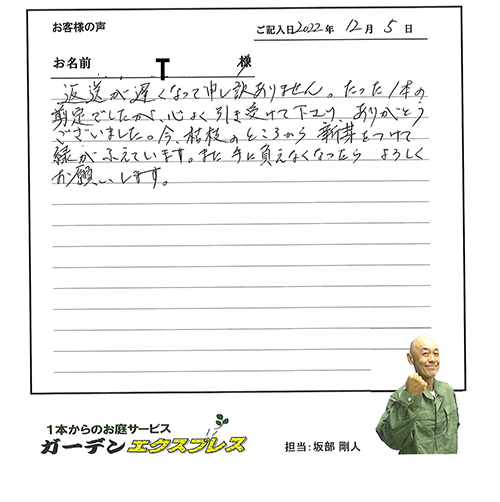 お客様の声
ご記入日2022年 12月 5日
お名前 T 様
返送が遅くなって申し訳ありません。たった1本の
剪定でしたが、心よく引き受けて下さり、ありがとう
ございました。今、枯枝のところから新芽をつけて
緑がふえています。また手に負えなくなったら よろしく
お願いします。
1本からのお庭サービス
ガーデンエクスプレス
担当:坂部 剛人